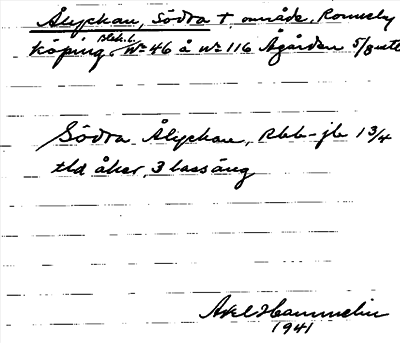 Ålyckan, Södra + område. Ronneby
köping. Blek. l. No 46 å No 116 Ågården 5/8 mtl
Södra Ålyckan, Rbb-jb 1 3/4
tld åker, 3 lass äng
Axel Hammelin
1941